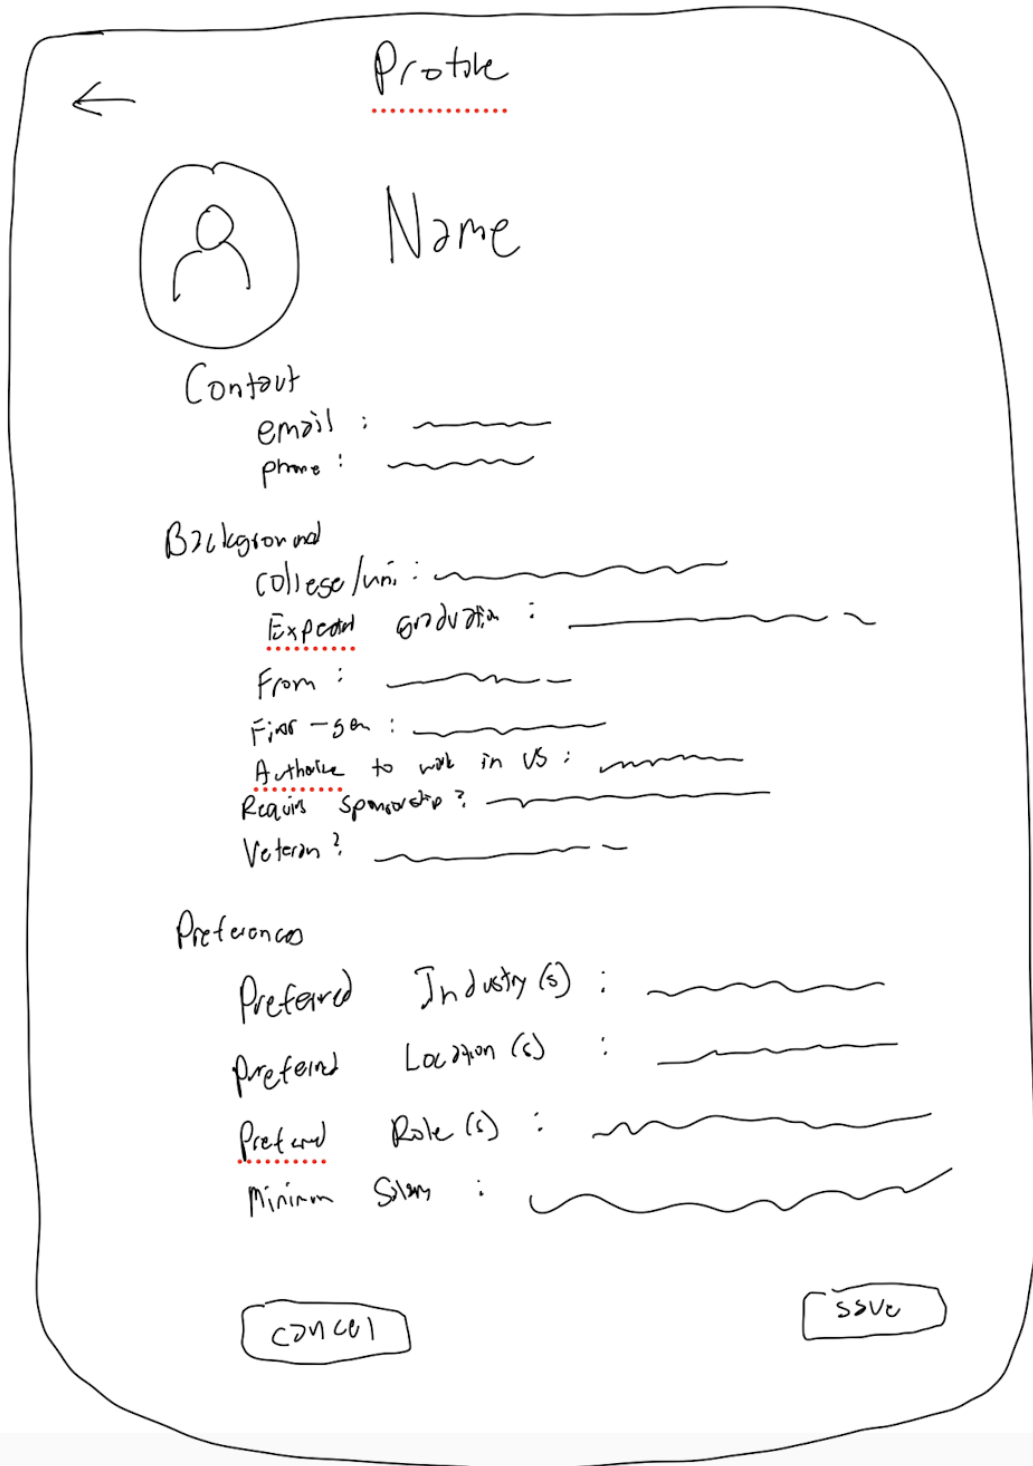 Profile
Name
Contact
email :
phone :
Background
college/uni :
Expected graduation :
From :
First-gen :
Authorize to work in US :
Require sponsorship?
Veteran?
Preferences
Preferred Industry(s) :
Preferred Location(s) :
Preferred Role(s) :
Minimum Salary :
cancel
save